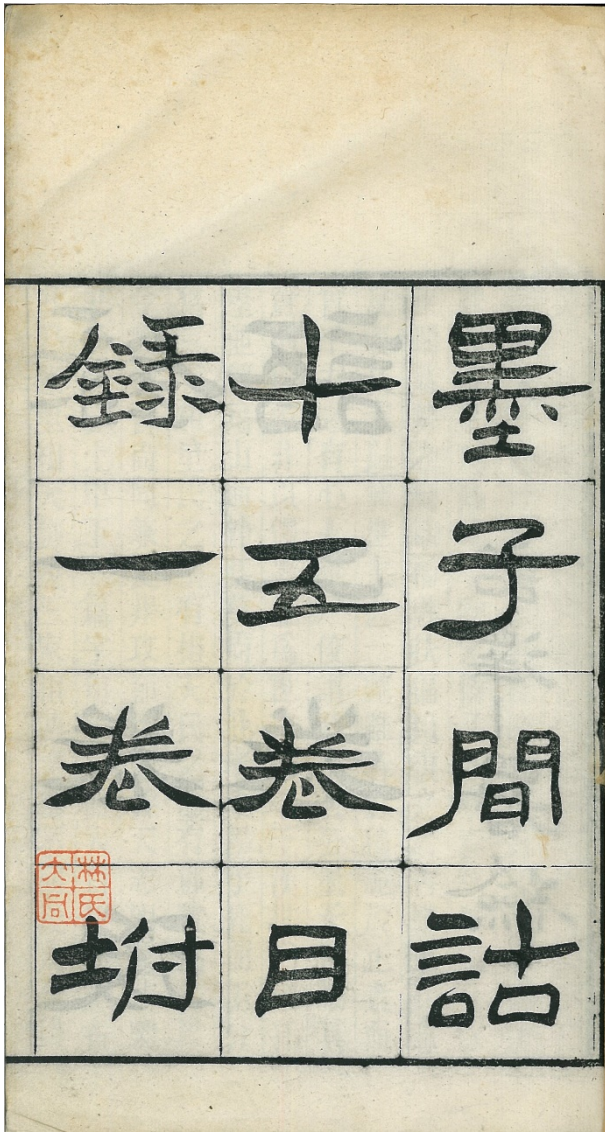 墨子間詁
十五卷目
錄一卷坿
林氏
大同